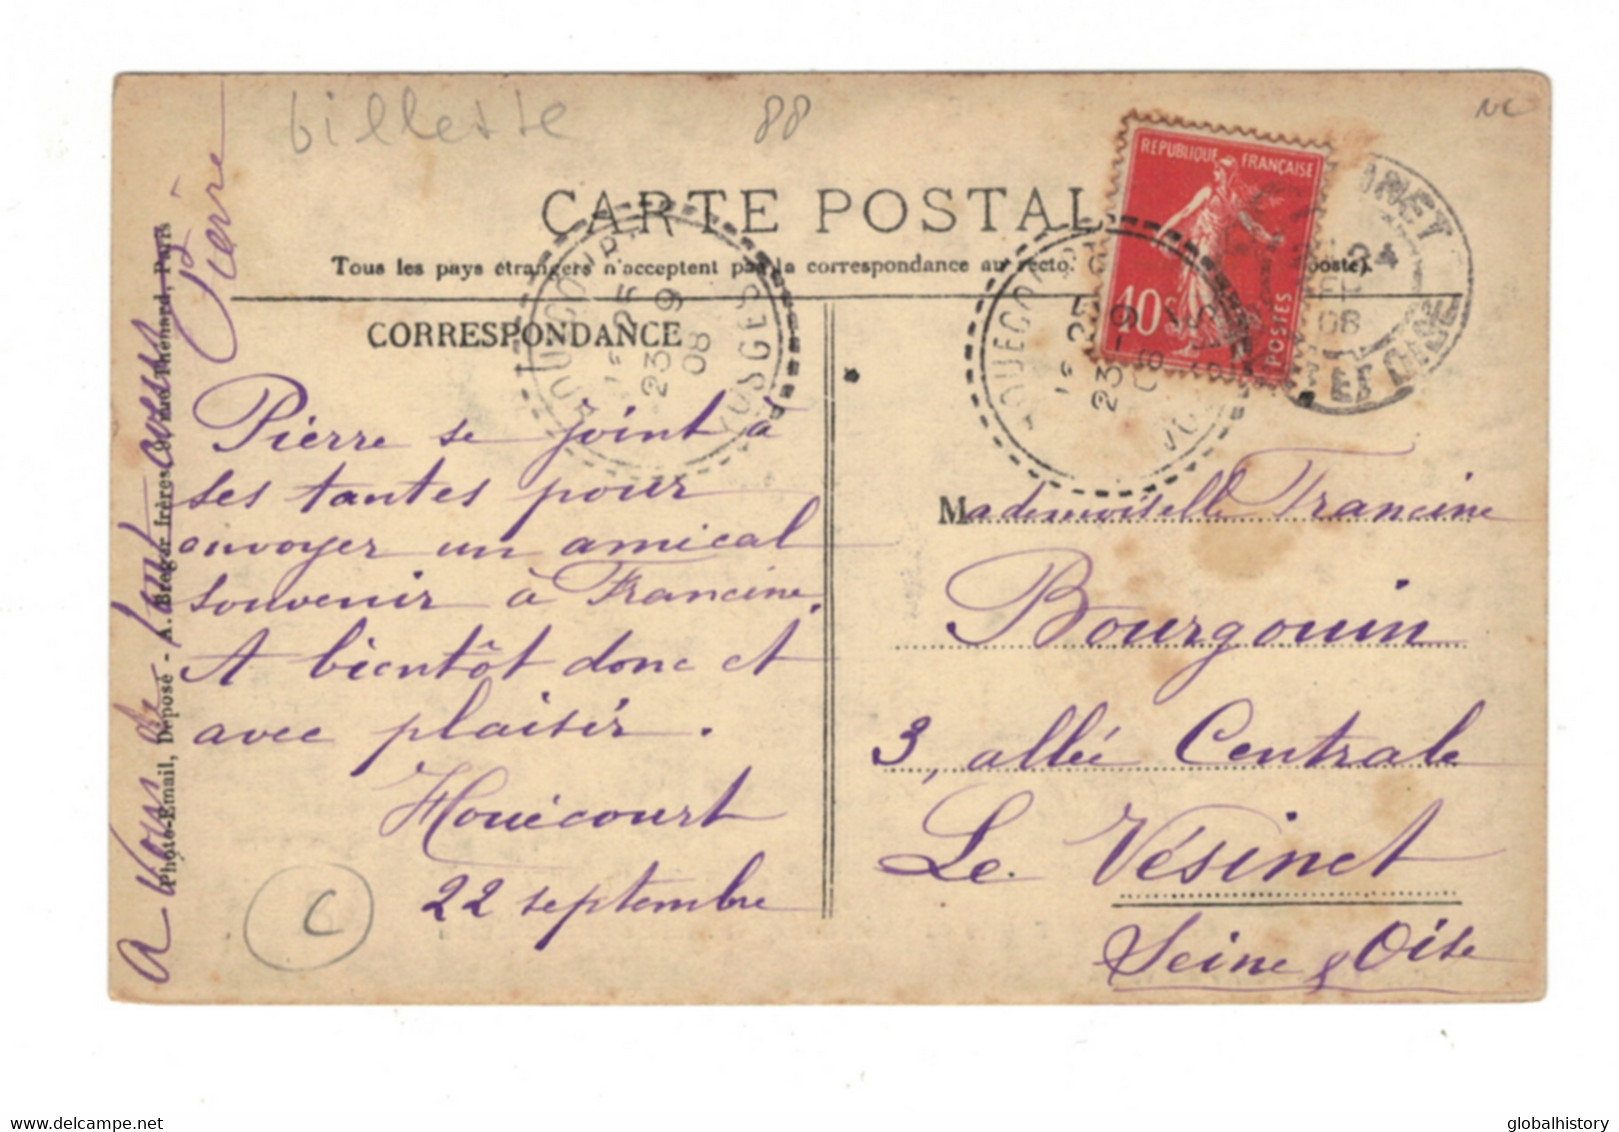 billette
88
NC
CARTE POSTALE
Tous les pays étrangers n'acceptent pas la correspondance au recto.
poste).
REPUBLIQUE FRANÇAISE
10c
POSTES
HOUECOURT
23 9
08
VOSGES
HOUECOURT
23 9
08
ET OISE
CORRESPONDANCE
Pierre se joint à
ses tantes pour
envoyer un amical
souvenir à Francine.
A bientôt donc et
avec plaisir.
Houécourt
22 septembre
C
a vous
Pierre
Photo-Email, Déposé - A. Breger frères, 9, rue Thénard, Paris
Mademoiselle Francine
Bourgouin
3, allée Centrale
Le Vésinet
Seine & Oise
delcampe.net
globalhistory